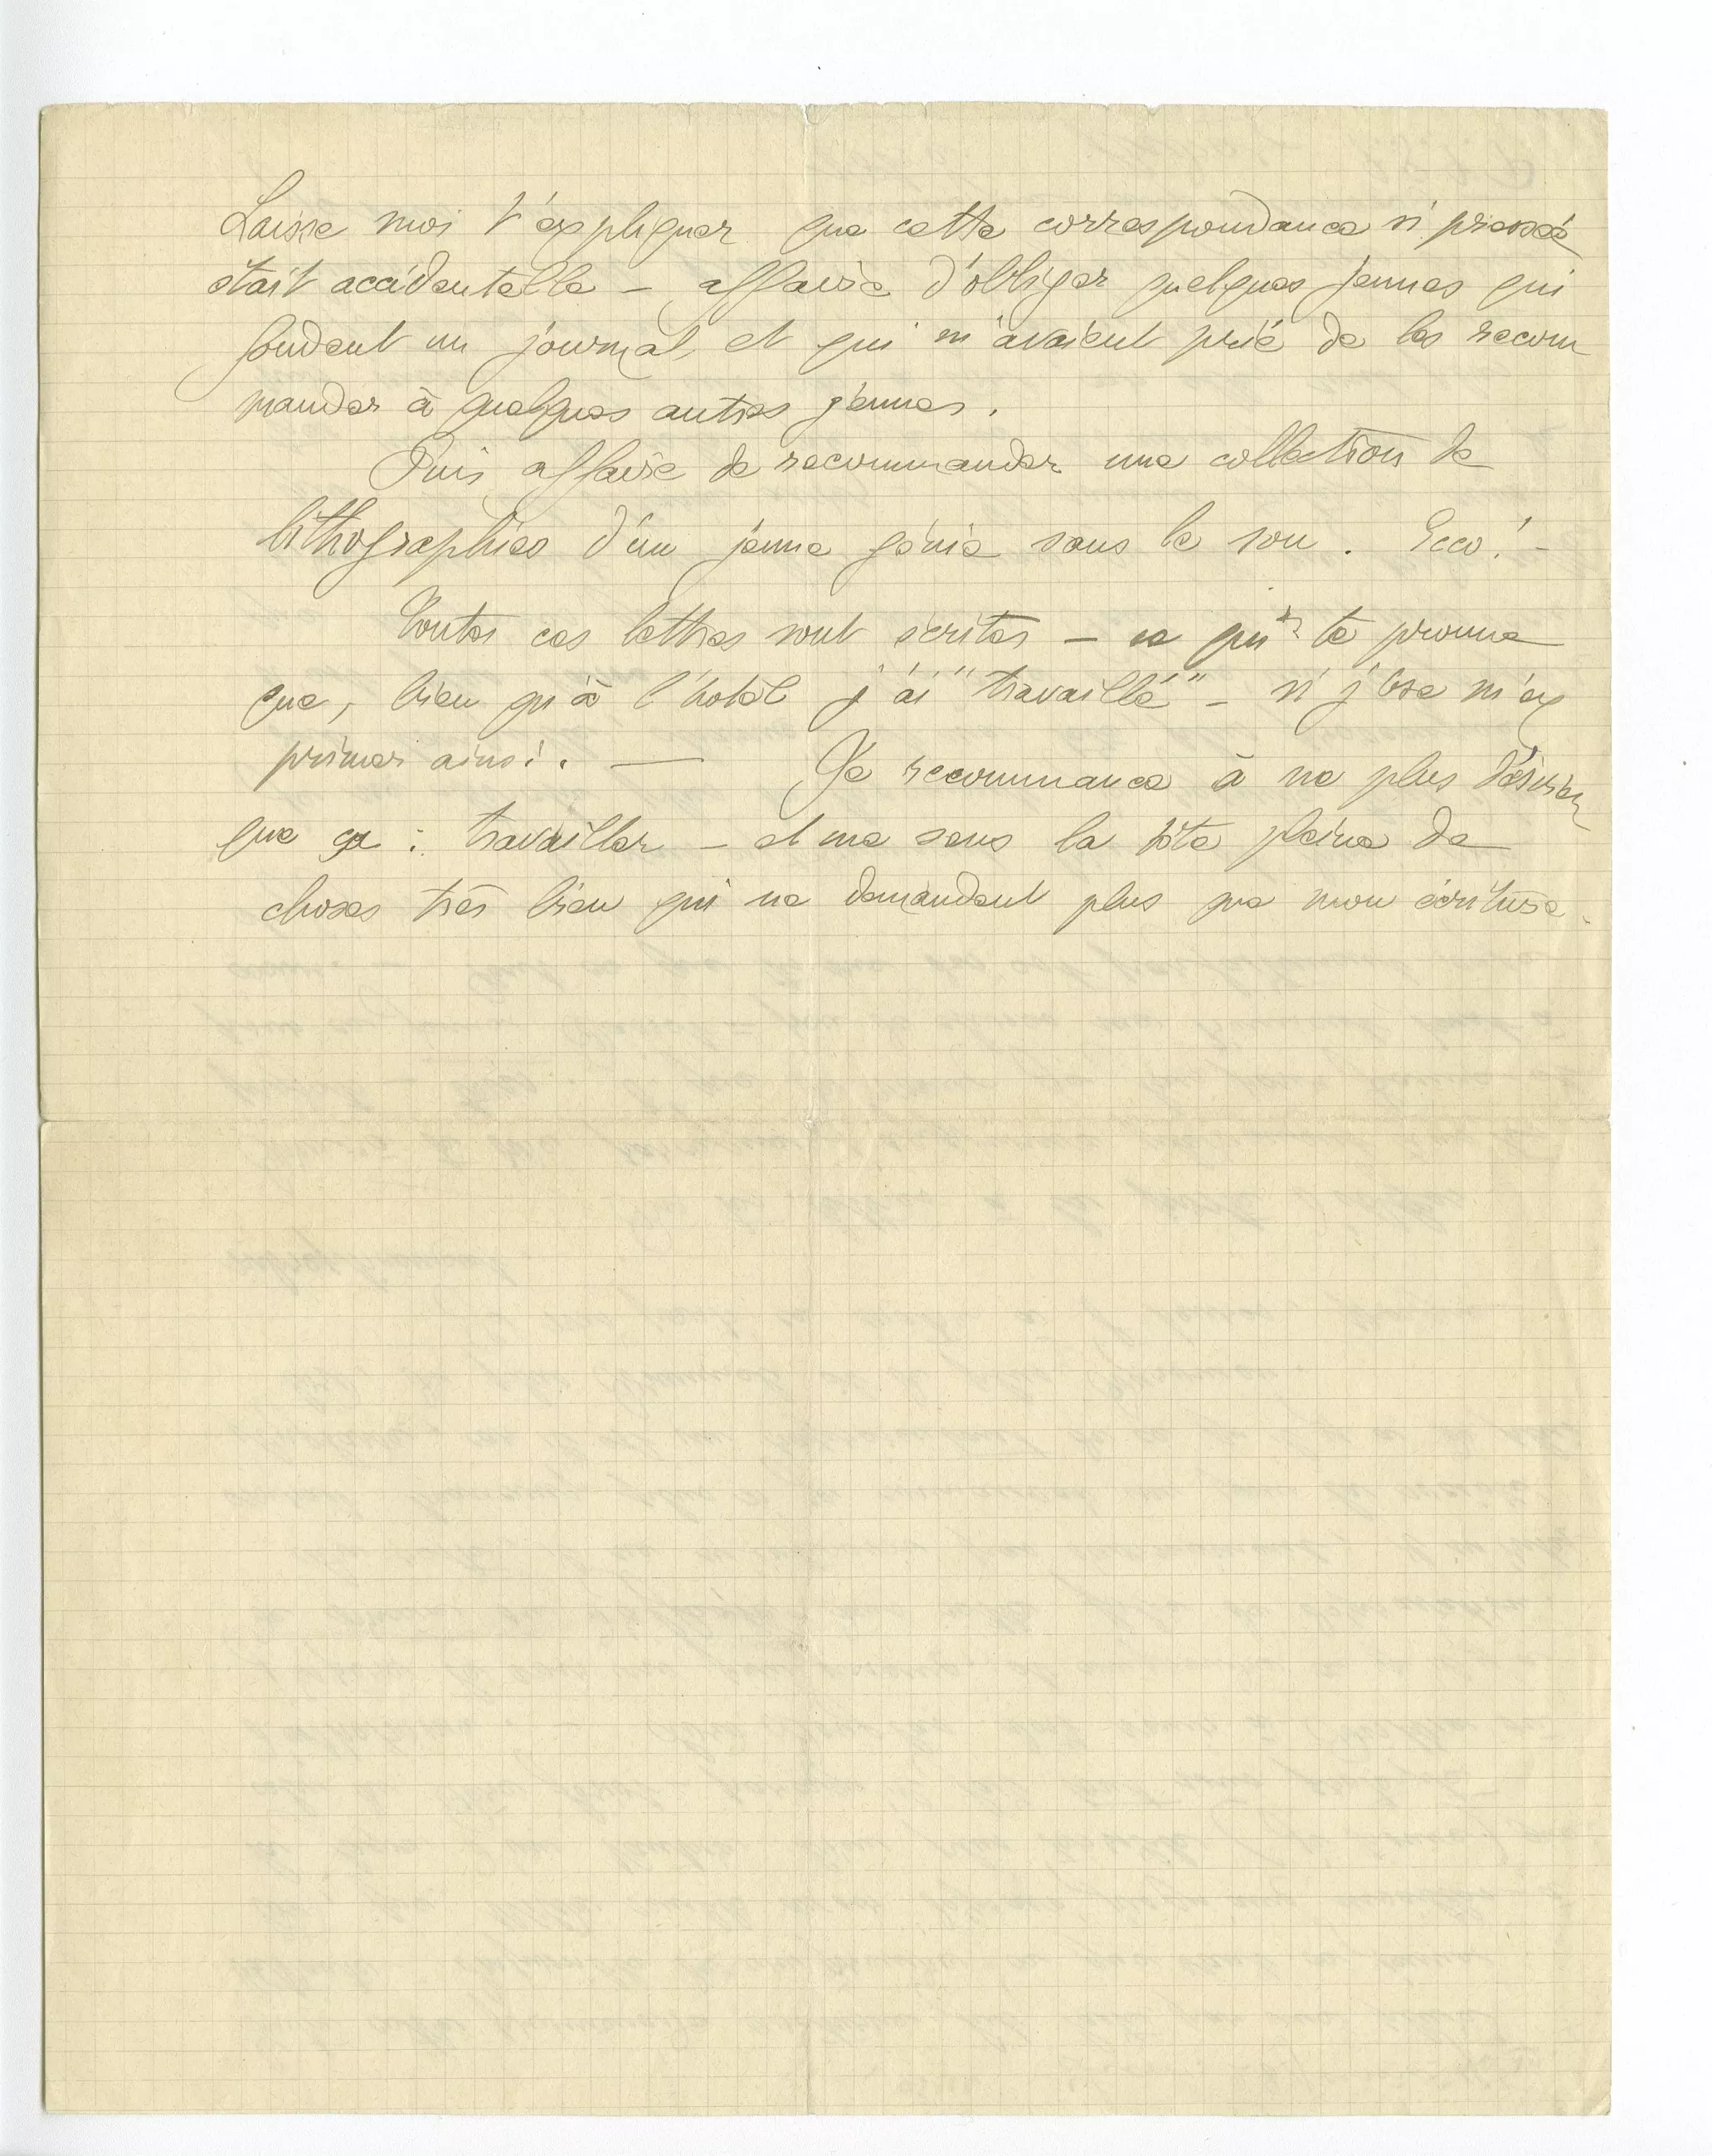 Laisse moi t'expliquer que cette correspondance si pressée
était accidentelle — affaire d'obliger quelques jeunes qui
fondent un journal, et qui m'avaient prié de les recom
mander à quelques autres jeunes.
Puis, affaire de recommander une collection de
lithographies d'un jeune génie sans le sou. Ecco! –
Toutes ces lettres sont écrites — ce qui te prouve
que, bien qu'à l'hôtel j'ai "travaillé" – si j'ose m'ex
primer ainsi. — Je recommence à ne plus désirer
que ça : travailler – et me sens la tête pleine de
choses très bien qui ne demandent plus que mon écriture.